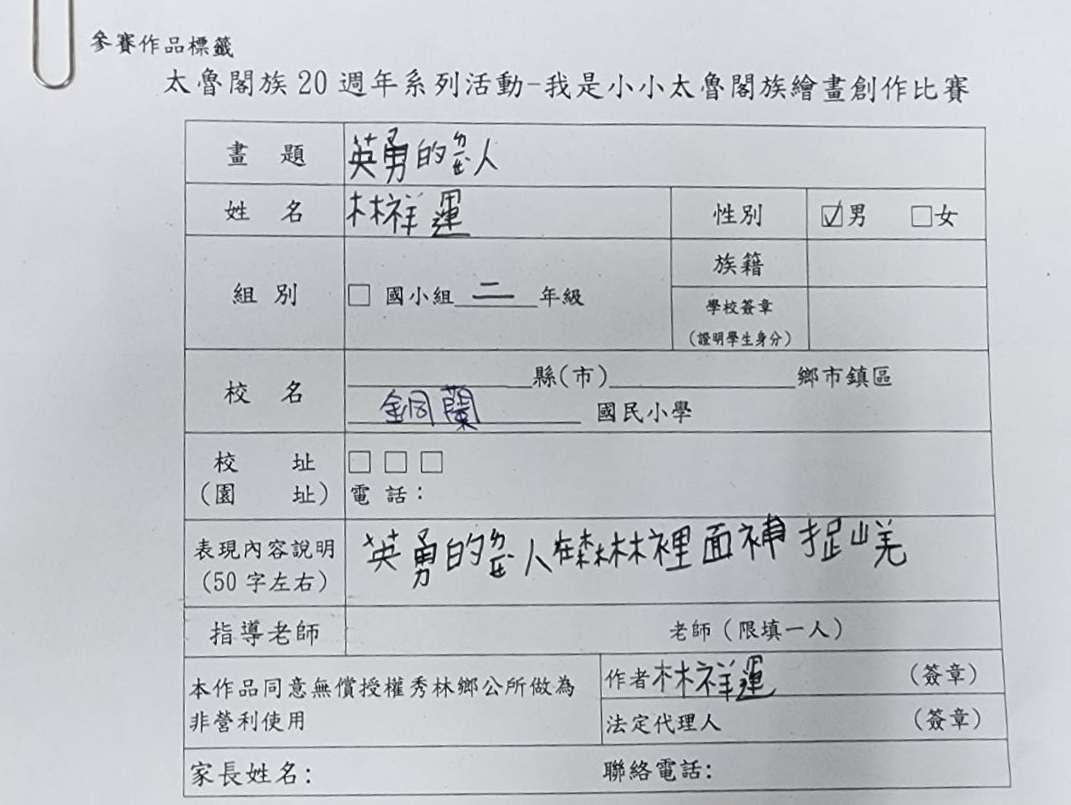 參賽作品標籤
太魯閣族20週年系列活動-我是小小太魯閣族繪畫創作比賽
畫 題 英勇的 人
姓 名 林祥運 性別 ☑男 □女
組 別 □ 國小組 二 年級
族籍
學校簽章
(證明學生身分)
校 名 縣(市) 鄉市鎮區
銅蘭 國民小學
校 址 □□□
(園 址) 電話：
表現內容說明 英勇的 人在森林裡面補捉山羌
(50字左右)
指導老師 老師(限填一人)
本作品同意無償授權秀林鄉公所做為
非營利使用
作者 林祥運 (簽章)
法定代理人 (簽章)
家長姓名： 聯絡電話：